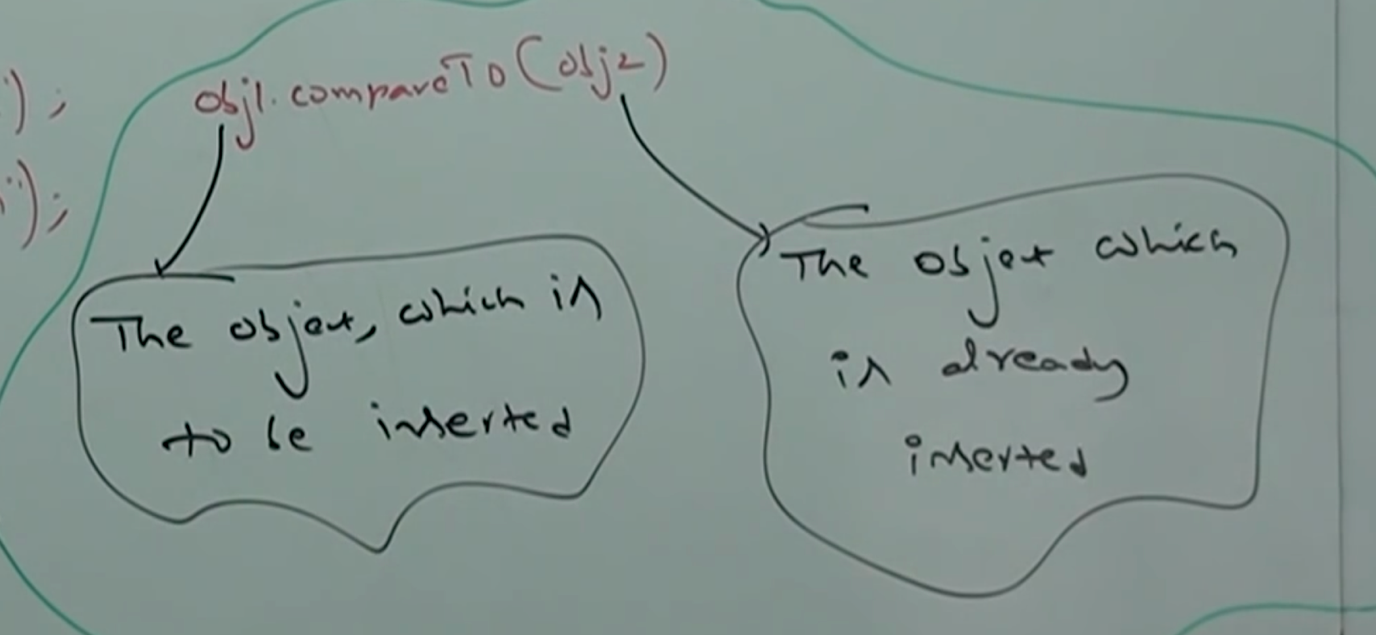 );
obj1.compareTo(obj2)
");
The object, which is
to be inserted
The object which
is already
inserted